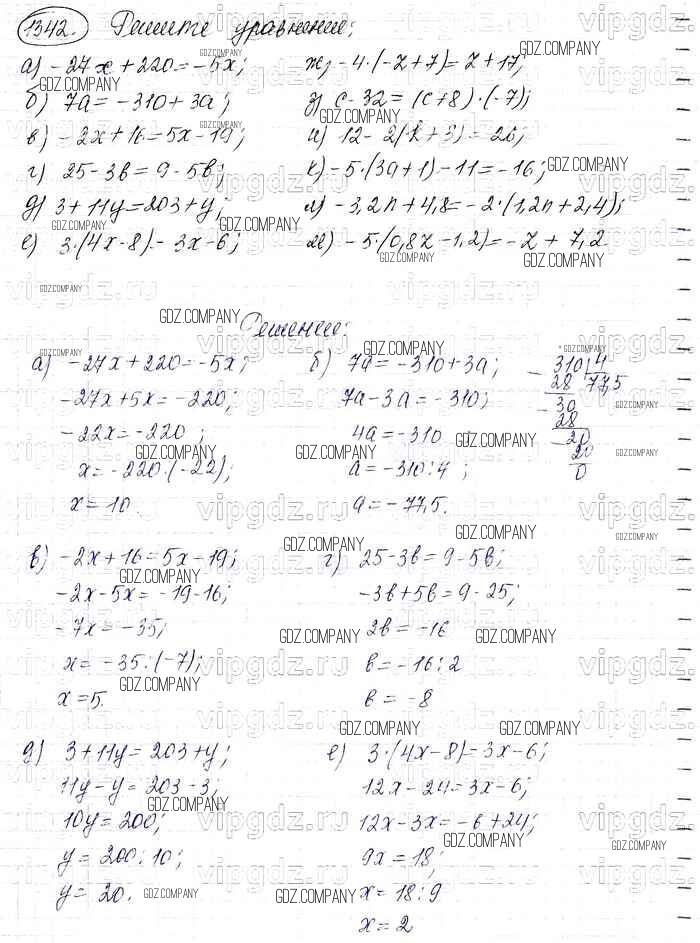 1342. Решите уравнение:
а) -27x+220=-5x; ж) -4·(-z+7)=z+17;
б) 7a=-310+3a; з) c-32=(c+8)·(-7);
в) -2x+16=5x-19; и) 12-2(k+3)=26;
г) 25-3b=9-5b; к) -5·(3a+1)-11=-16;
д) 3+11y=203+y; л) -3,2n+4,8=-2·(1,2n+2,4);
е) 3·(4x-8)=3x-6; м) -5·(0,8z-1,2)=-z+7,2
Решение:
а) -27x+220=-5x;
-27x+5x=-220;
-22x=-220;
x=-220:(-22);
x=10.
б) 7a=-310+3a;
7a-3a=-310;
4a=-310
a=-310:4;
a=-77,5.
310 4
28 77,5
30
28
20
20
0
в) -2x+16=5x-19;
-2x-5x=-19-16;
-7x=-35;
x=-35:(-7);
x=5.
г) 25-3b=9-5b;
-3b+5b=9-25;
2b=-16
b=-16:2
b=-8
д) 3+11y=203+y;
11y-y=203-3;
10y=200;
y=200:10;
y=20.
е) 3·(4x-8)=3x-6;
12x-24=3x-6;
12x-3x=-6+24;
9x=18;
x=18:9
x=2
vipgdz.ru
GDZ.COMPANY